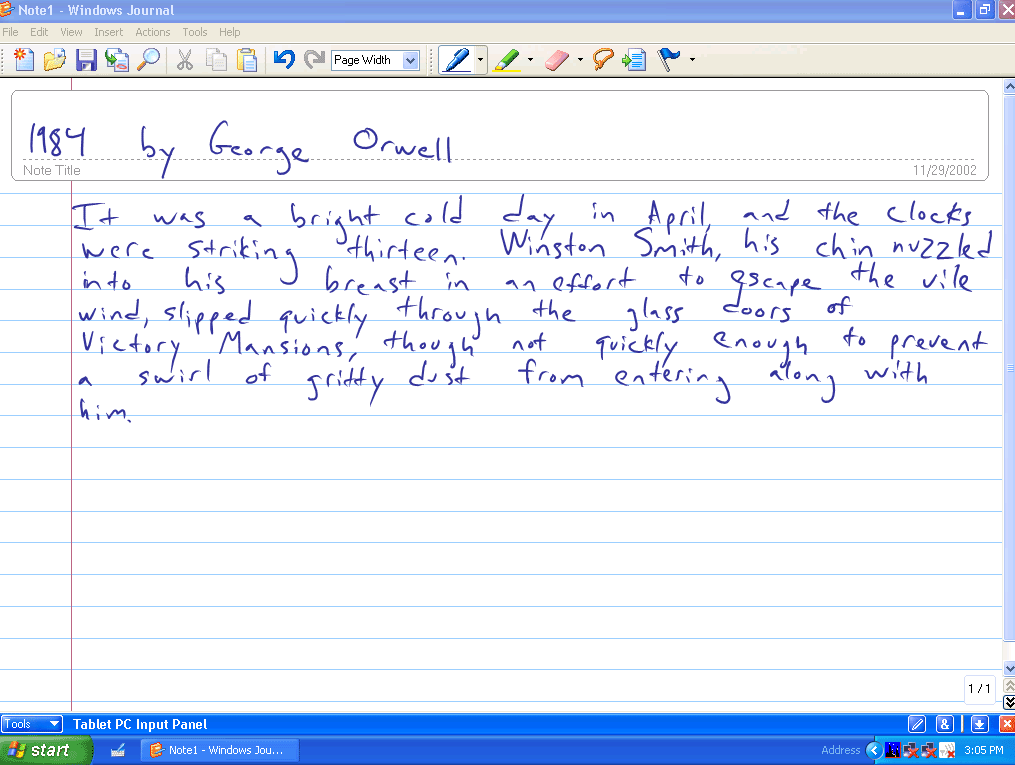 Note1 - Windows Journal
File Edit View Insert Actions Tools Help
Page Width
1984 by George Orwell
Note Title 11/29/2002
It was a bright cold day in April, and the clocks
were striking thirteen. Winston Smith, his chin nuzzled
into his breast in an effort to escape the vile
wind, slipped quickly through the glass doors of
Victory Mansions, though not quickly enough to prevent
a swirl of gritty dust from entering along with
him.
1 / 1
Tools Tablet PC Input Panel &
start Note1 - Windows Jou... Address 3:05 PM